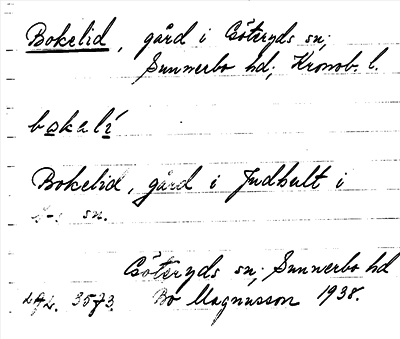 Bokelid, gård i Göteryds sn;
Sunnerbo hd; Kronob. l.
bokalí
Bokelid, gård i Judhult i
G-s sn.
Göteryds sn; Sunnerbo hd
Bo Magnusson 1938.
3573.